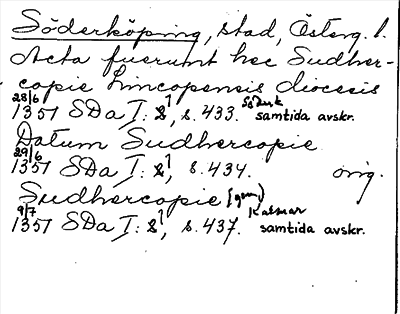 Söderköping, stad, Österg. l.
Acta fuerunt hec Sudher-
copie Lincopensis diocesis
28/6 1351 SDa I:1, s. 433. samtida avskr.
Datum Sudhercopie
29/6 1351 SDa I:1, s. 434. orig.
Sudhercopie (gen.)
9/7 1351 SDa I:1, s. 437. Kalmar samtida avskr.